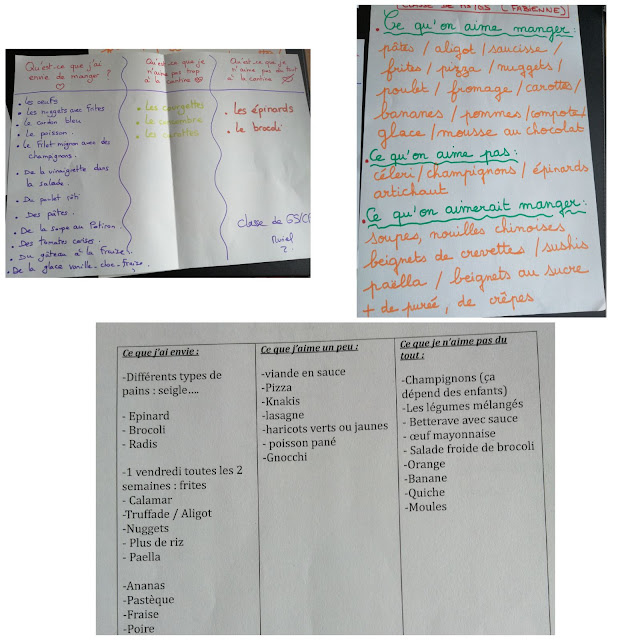 Qu'est-ce que j'ai
envie de manger ?
• Les oeufs
• Les nuggets avec frites
• Le cordon bleu
• Le poisson.
• Le filet mignon avec des
champignons.
• De la vinaigrette dans
la salade.
• Du poulet rôti
• Des pâtes.
• De la soupe au Potiron
• Des tomates cerises.
• Du gâteau à la fraise.
• De la glace vanille-choc-fraise.
Qu'est-ce que je
n'aime pas trop
à la cantine
• Les courgettes
• Le concombre
• Les carottes
Qu'est-ce que je
n'aime pas du tout
à la cantine
• Les épinards
• Le brocoli
Classe de GS/CP
CLASSE DE MS/GS (FABIENNE)
• Ce qu'on aime manger :
pâtes / aligot / saucisse /
frites / pizza / nuggets /
poulet / fromage / carottes /
bananes / pommes / compote /
glace / mousse au chocolat
• Ce qu'on aime pas :
céleri / champignons / épinards
artichaut
• Ce qu'on aimerait manger :
soupes, nouilles chinoises
beignets de crevettes / sushis
paëlla / beignets au sucre
+ de purée, de crêpes
Ce que j'ai envie :
-Différents types de
pains : seigle….
- Epinard
- Brocoli
- Radis
-1 vendredi toutes les 2
semaines : frites
- Calamar
-Truffade / Aligot
-Nuggets
- Plus de riz
- Paella
-Ananas
-Pastèque
-Fraise
-Poire
Ce que j'aime un peu :
-viande en sauce
-Pizza
-Knakis
-lasagne
-haricots verts ou jaunes
- poisson pané
-Gnocchi
Ce que je n'aime pas du
tout :
-Champignons (ça
dépend des enfants)
-Les légumes mélangés
- Betterave avec sauce
- œuf mayonnaise
- Salade froide de brocoli
-Orange
-Banane
-Quiche
-Moules